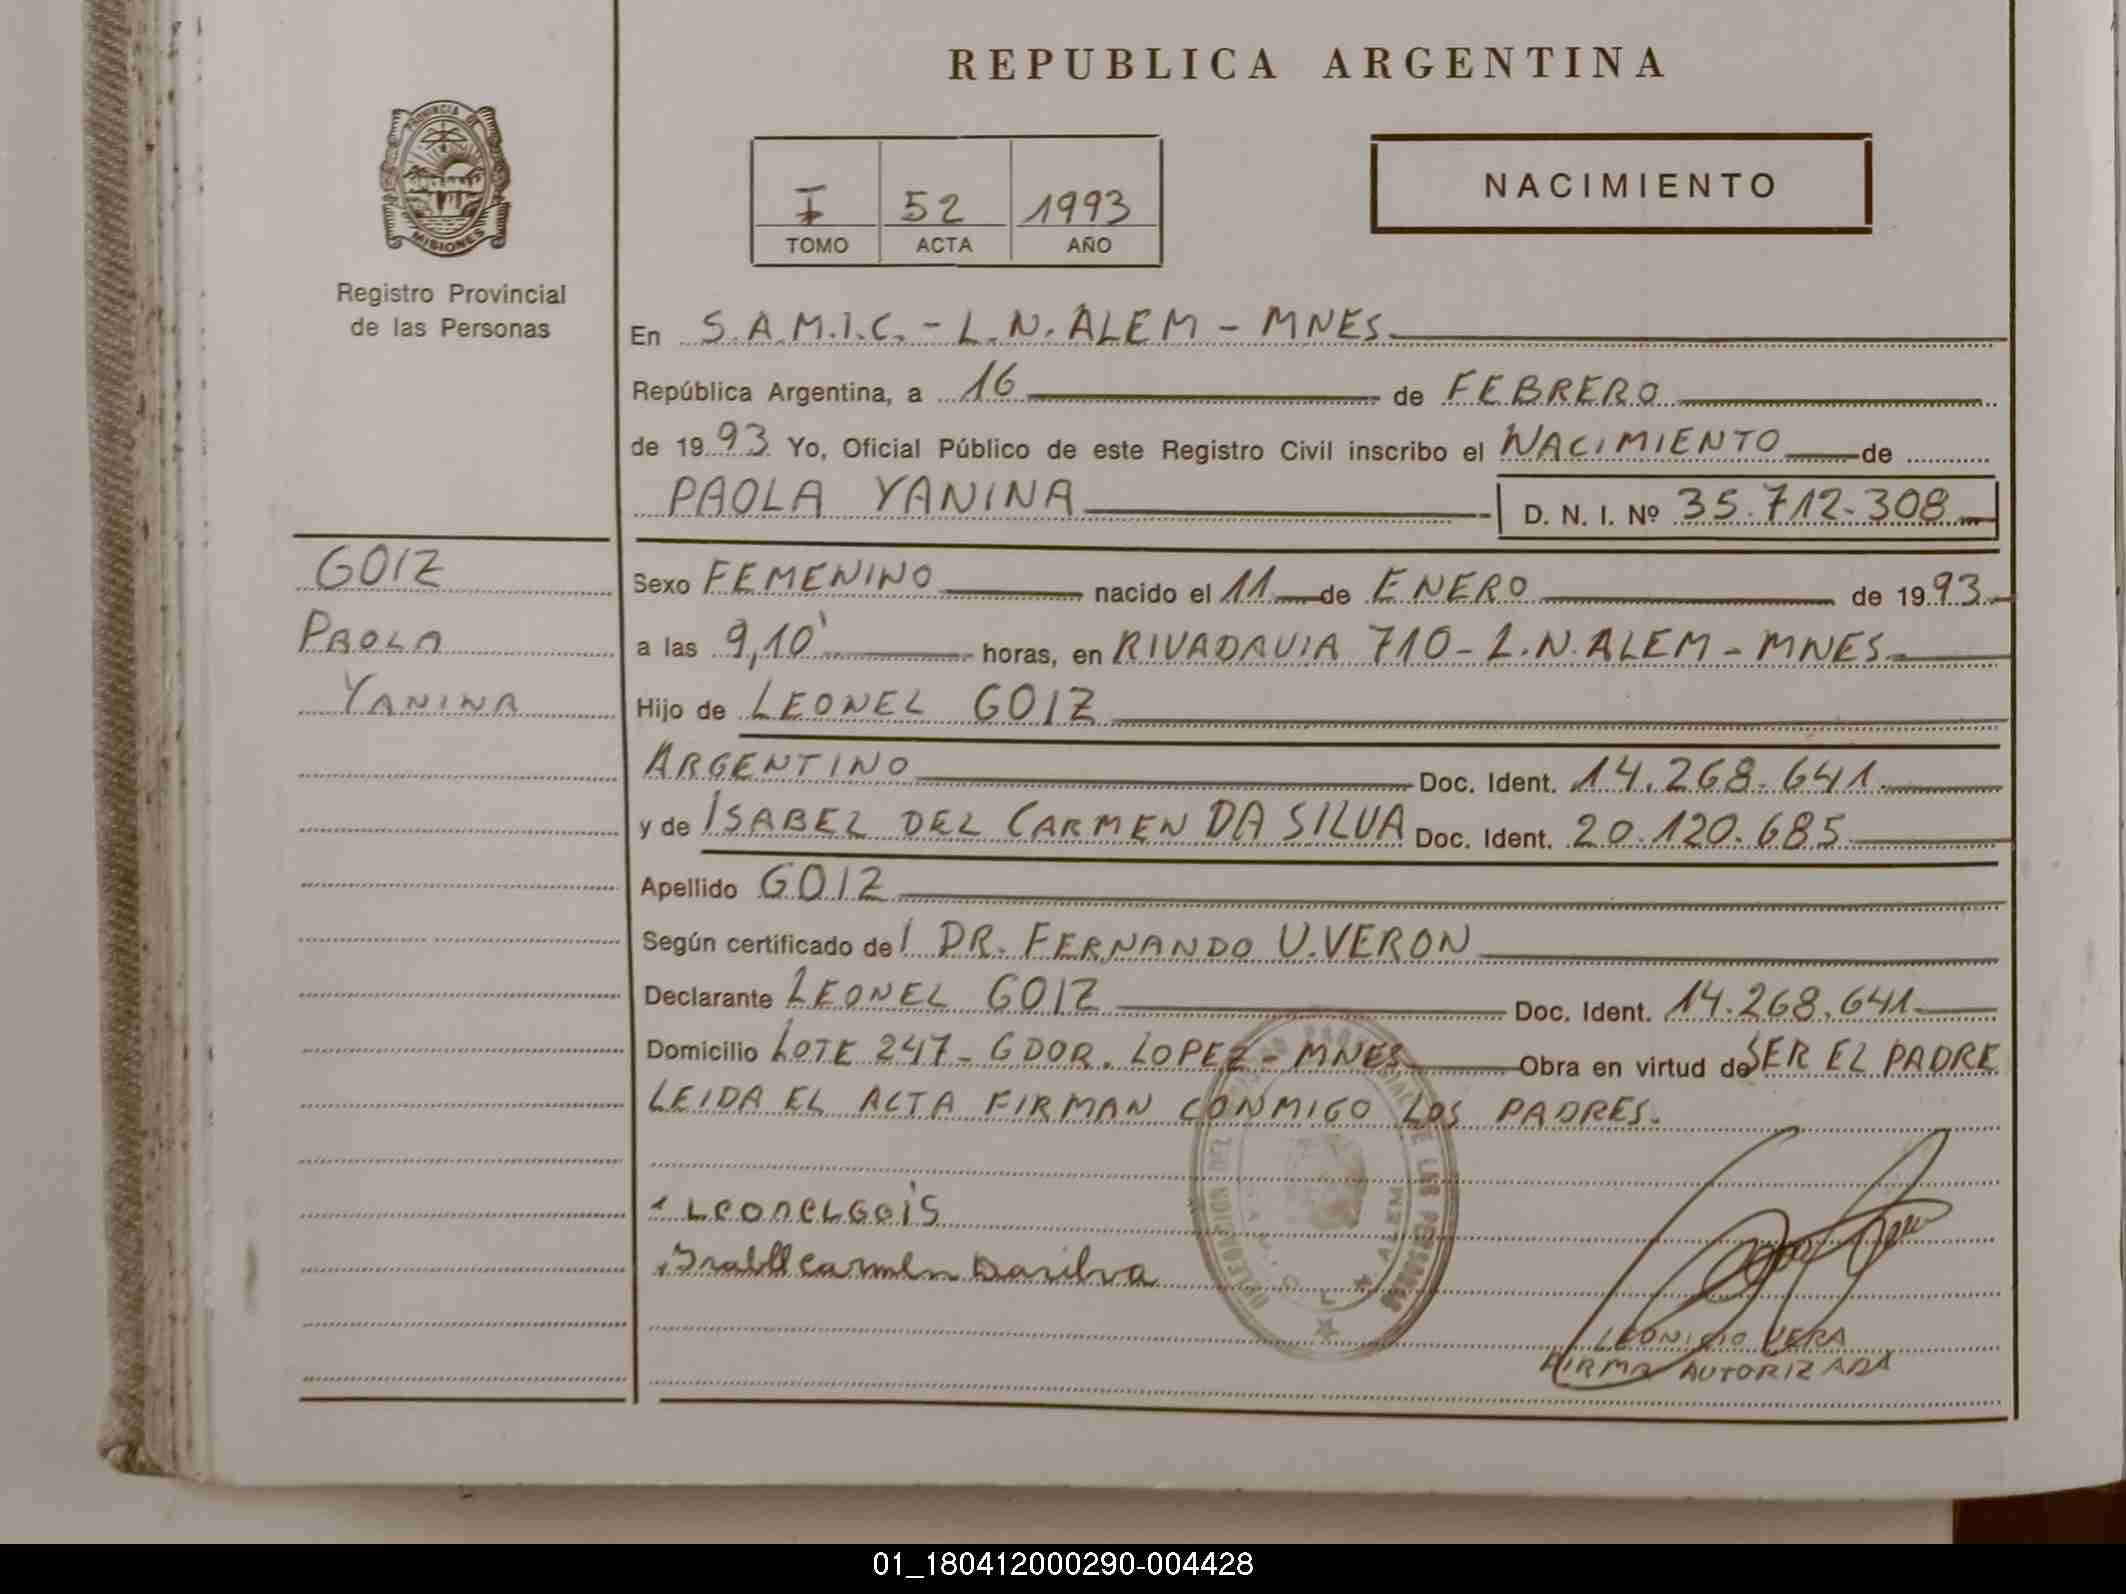 REPUBLICA ARGENTINA
PROVINCIA DE
MISIONES
Registro Provincial
de las Personas
I 52 1993
TOMO ACTA AÑO
NACIMIENTO
En S.A.M.I.C. - L.N. ALEM - MNES
República Argentina, a 16 de FEBRERO
de 1993 Yo, Oficial Público de este Registro Civil inscribo el NACIMIENTO de
PAOLA YANINA D. N. I. Nº 35.712.308
GOIZ
PAOLA
YANINA
Sexo FEMENINO nacido el 11 de ENERO de 1993
a las 9,10' horas, en RIVADAVIA 710 - L.N. ALEM - MNES
Hijo de LEONEL GOIZ
ARGENTINO Doc. Ident. 14.268.641
y de ISABEL DEL CARMEN DA SILVA Doc. Ident. 20.120.685
Apellido GOIZ
Según certificado de l DR. FERNANDO U. VERON
Declarante LEONEL GOIZ Doc. Ident. 14.268.641
Domicilio LOTE 247 - GDOR. LOPEZ - MNES Obra en virtud de SER EL PADRE
LEIDA EL ACTA FIRMAN CONMIGO LOS PADRES.
LEONEL GOIS
Isabell carmen Dasilva
DELEGACION DEL REGISTRO PROVINCIAL DE LAS PERSONAS
L. ALEM
LEONICIO VERA
FIRMA AUTORIZADA
01_180412000290-004428